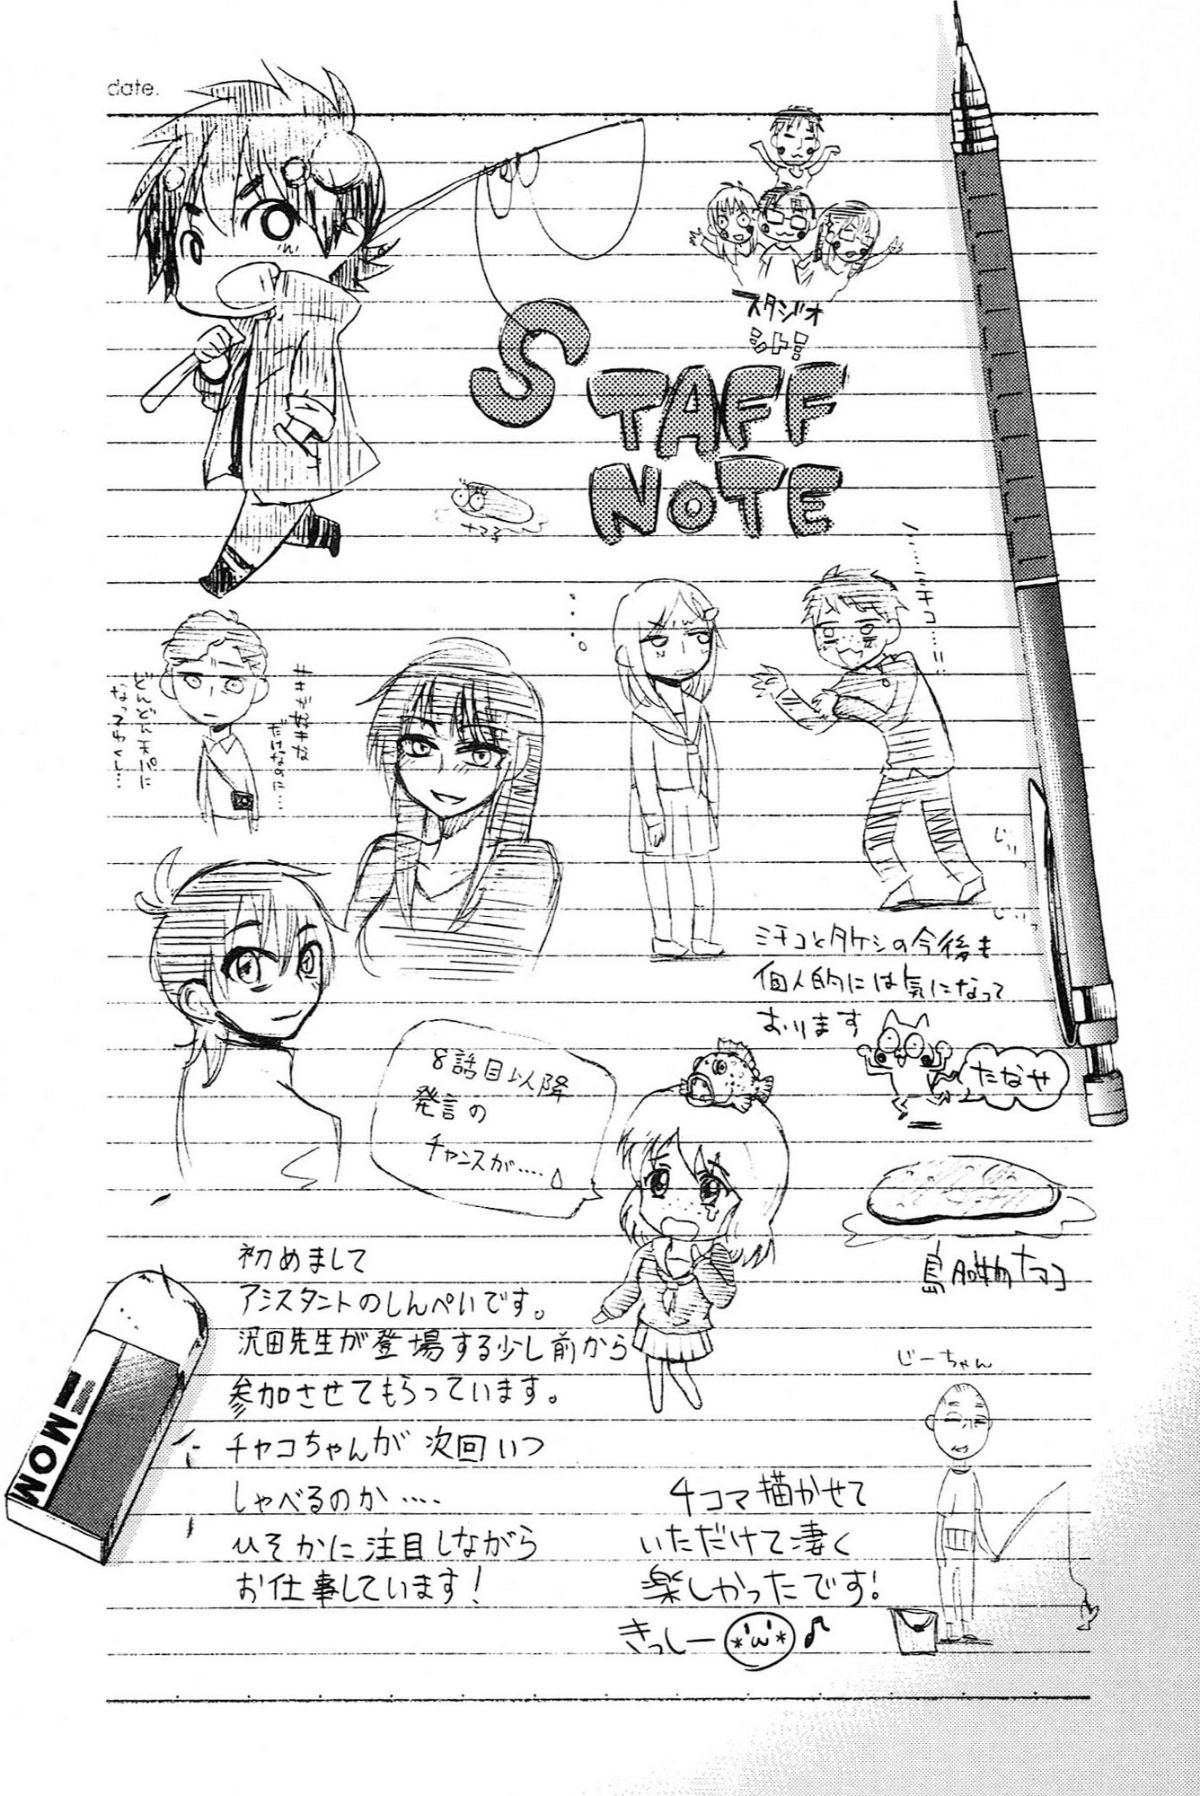 date.
スタジオ
シトミ
STAFF
NOTE
ナマ子
ミ…ミチコ…!!
…
キキデカキな
だけなのに…
どんどん天パに
なってゆく…
じぃ
じぃっ
ミチコとタケシの今後も
個人的には気になって
おります
たなせ
8話目以降
発言の
チャンスが….
島の産物ナマコ
初めまして
アシスタントのしんぺいです。
沢田先生が登場する少し前から
参加させてもらっています。
チャコちゃんが次回いつ
しゃべるのか….
ひそかに注目しながら
お仕事しています!
じーちゃん
4コマ描かせて
いただけて凄く
楽しかったです!
きっしー*'ω'*♪
MOM